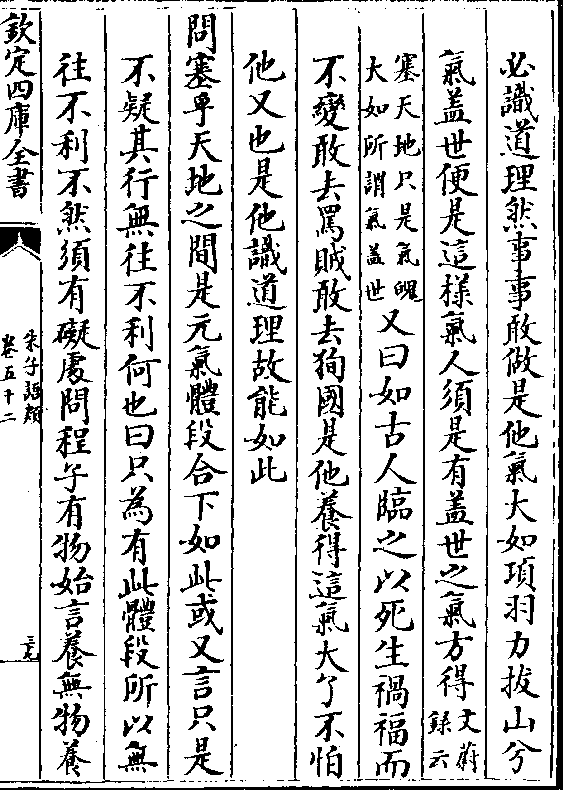 必識道理然事事敢做是他氣大如項羽力拔山兮
氣盖世便是這樣氣人須是有盖世之氣方得文蔚録云
塞天地只是氣魄大如所謂氣盖世又曰如古人臨之以死生禍福而
不變敢去罵賊敢去狥國是他養得這氣大了不怕
他又也是他識道理故能如此
問塞乎天地之間是元氣體段合下如此或又言只是
不疑其行無往不利何也曰只為有此體段所以無
往不利不然須有礙處問程子有物始言養無物養
欽定四庫全書
朱子語類
卷五十二